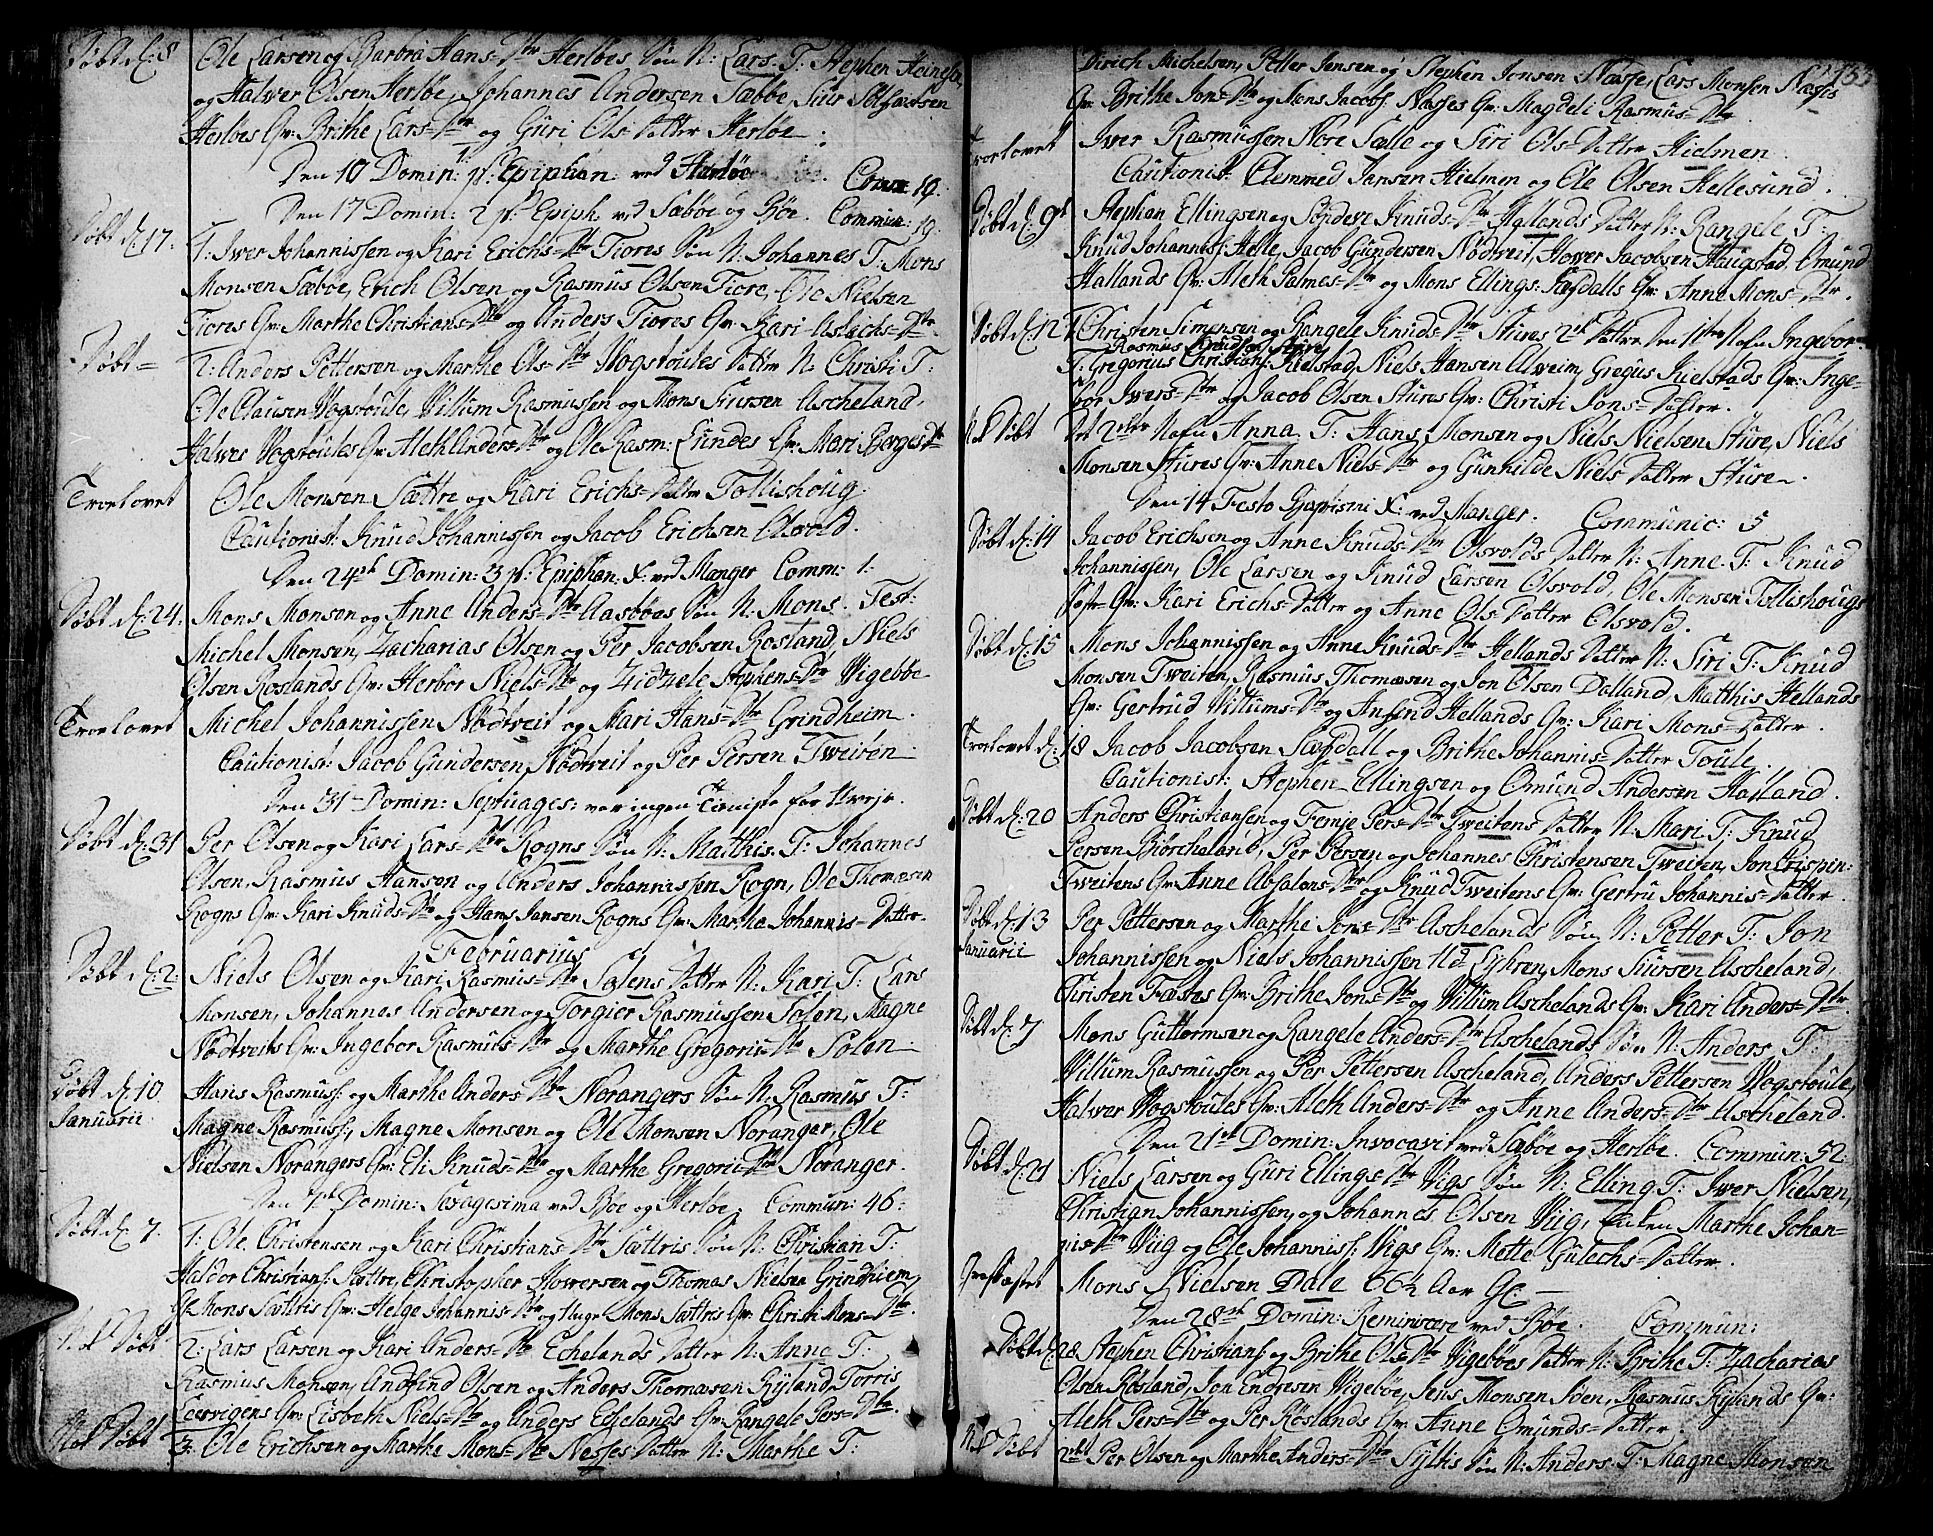 Døbt d: 8 Ole Larsen og Barbra Hans-Dtr Herløes Søn N: Lars T: Stephen Heinesen
og Halwer Olsen Herløe, Johannes Andersen Sæbøe, Siur
Herløes Qv: Brithe Lars-Dtr og Guri Ols-Datter Herløe
Den 10 Domin: 1 p: Epiphan: ved Herløe Comm 19.
Den 17 Domin: 2 p: Epiph. ved Sæbøe og Bøe. Commun: 19.
Døbt d. 17. 1: Iwer Johannissen og Kari Erichs-Dtr Fiores Søn N: Johannes T: Mons
Monsen Sæbøe, Erich Olsen og Rasmus Olsen Fiore, Ole Nielsen
Fiores Qv: Marthe Christians-Dtr og Anders Fiores Qv: Kari Aslachs-Dtr
Døbt = 2: Anders Pettersen og Marthe Ols-Dtr Wogstoules Datter N: Christi T:
Ole Clausen Wogstoule, Willum Rasmussen og Mons Siursen Ascheland,
Halwer Wogstoules Qv: Aleth Anders-Dtr og Ole Rasm: Lundes Qv: Mari Børges-Dtr
Trorlovet Ole Monsen Sættre og Kari Erichs-Datter Tollishoug
Cautionist: Knud Johannissen og Jacob Erichsen Olsvold.
Den 24de Domin: 3 p: Epiphan: X: ved Manger Comm: 1:
Døbt d: 24. Mons Monsen og Anne Anders-Dtr Aasbøes Søn N: Mons. Test:
Michel Monsen, Zacharias Olsen og Per Jacobsen Rosland, Niels
Olsen Roslands Qv: Herbor Niels-Dtr og Zidzele Stephens-Dtr Wigebbe
Trorlovet Michel Johannissen Nødtveit og Mari Hans-Dtr Grindheim.
Cautionist: Jacob Gundersen Nødtveit og Per Persen Tweiten
Den 31 Domin: Septuages: var ingen Tieniste for Uvejr.
Døbt d. 31 Per Olsen og Kari Lars-Dtr Rogns Søn N: Matthis. T: Johannes
Olsen, Rasmus Hansen og Anders Johannissen Rogn, Ole Thomesen
Rogns Qv: Kari Knuds-Dtr og Hans Jansen Rogns Qv: Martha Johannis-Datter
Februarius
Døbt d: 2: Niels Olsen og Kari Rasmus-Dtr Solens Datter N: Kari T: Lars
Monsen, Johannes Andersen og Torgier Rasmussen Solen, Magne
Nødtveits Qv: Ingebor Rasmus-Dtr og Marthe Gregorii-Dtr Solen
Døbt d. 10 Januarii Hans Rasmuss: og Marthe Anders-Dtr Norangers Søn N: Rasmus T:
Magne Rasmuss, Magne Monsen og Ole Monsen Noranger, Ole
Nielsen Norangers Qv: Eli Knuds-Dtr og Marthe Gregorii-Dtr Noranger.
Den 7de Domin: Sexagesima ved Bøe og Herløe Commun: 46:
Døbt d. 7. 1: Ole Christensen og Kari Christians-Dtr Sættris Søn N: Christian T:
Haldor Christians: Sættre, Christopher Howersen og Thomas Nielsen Grindhiem,
Mons Sættris Qv: Helge Johannis-Dtr og Mons Sættris Qv: Christi Mons-Dtr.
Nok Døbt 2: Lars Larsen og Kari Anders-Dtr Echelands Datter N: Anne T:
Rasmus Monsen, Andfind Olsen og Anders Thomasen Ryland, Torris
Leervigens Qv: Lisbeth Niels-Dtr og Anders Echelands Qv: Rangele Pers-Dtr.
Nok Døbt 3: Ole Erichsen og Marthe Mons-Dtr Nesses Datter N: Marthe T:
Dirich Michelsen, Petter Jensen og Stephen Jonsen Næsse, Lars Monsen Næsses 133
Qv: Brithe Jons-Dtr og Mons Jacobs. Næsses Qv: Magdeli Rasmus-Dtr
Trorlovet Iwer Rasmussen Nore Sælle og Siri Ols-Datter Hielmen.
Cautionist: Clemmed Jansen Hielmen og Ole Olsen Hellesund.
Døbt d: 9de Stephan Ellingsen og Synneve Knuds-Dtr Hallands Datter N: Rangele T:
Knud Johanniss: Helle, Jacob Gundersen Nødtveit, Hower Jacobsen Haugstad, Omund
Hallands Qv: Aleth Palmes-Dtr og Mons Ellings: Kogdalls Qv: Anne Mons-Dtr.
Døbt d. 12 Christen Simensen og Rangele Knuds-Dtr Stures 2de Døttre Den 1ste Nafn Ingebor
Rasmus Knudsen Sture
T: Gregorius Christians: Kielstad, Niels Hansen Alweim, Gregus Kielstads Qv: Inge-
bor Iwers-Dtr og Jacob Olsen Stures Qv: Christi Jons-Datter.
Nok Døbt Det 2det Nafn Anna T: Hans Monsen og Niels Nielsen Sture, Niels
Monsen Stures Qv: Anne Niels-Dtr og Gunhilde Niels Datter Sture.
Den 14 Festo Baptismi X: ved Manger. Communic: 5
Døbt d: 14 Jacob Erichsen og Anne Knuds-Dtr Olsvolds Datter N: Anne. T: Knud
Johannissen, Ole Larsen og Knud Larsen Olsvold, Ole Monsen Tollishougs
Feste-Qv: Kari Erichs-Datter og Anne Ols-Datter Olsvold.
Døbt d: 15 Mons Johannissen og Anne Knuds-Dtr Hellands Datter N: Siri T: Knud
Monsen Tweiten, Rasmus Thomæsen og Jon Olsen Dalland, Matthis Hellands
Qv: Gertrud Willums-Dtr og Ansind Hellands Qv: Kari Mons-Datter.
Trorlovet d: 18 Jacob Jacobsen Sugdall og Brithe Johannis-Datter Toule.
Cautionist: Stephen Ellingsen og Omund Andersen Halland.
Døbt d: 20 Anders Christiansen og Femje Pers-Dtr Tweitens Datter N: Mari, T: Knud
Persen Biørcheland, Per Persen og Johannes Christensen Tweiten, Jon Crispin:
Tweitens Qv: Anne Absalons-Dtr og Knud Tweitens Qv: Gertru Johannis-Datter.
Døbt d. 13 Januarii Per Pettersen og Marthe Jons-Dtr Aschelands Søn N: Petter T: Jon
Johannissen og Niels Johannissen Ild Lyhren, Mons Siursen Ascheland,
Christen Fæstes Qv: Brithe Jons-Dtr og Willum Aschelands Qv: Kari Anders-Dtr.
Døbt d. 7 Mons Guttormsen og Rangele Anders-Dtr Aschelands Søn N: Anders T:
Willum Rasmussen og Per Pettersen Ascheland, Anders Pettersen Wogstoule,
Halwer Wogstoules Qv: Aleth Anders-Dtr og Anne Anders-Dtr Ascheland.
Den 21de Domin: Invocavit ved Sæbøe og Herløe. Commun: 52
Døbt d: 21 Niels Larsen og Guri Ellings Dtr Wigs Søn N: Elling T: Iwer Nielsen,
Christian Johannissen, og Johannes Olsen Wiig, Enken Marthe Johan-
nis-Dtr Wiig og Ole Johanniss: Wigs Qv: Mette Gutechs-Datter.
Mons Nielsen Dale 66½ Aar
Den 28de Domin: Reminiscere ved Bøe. Commun:
Døbt d: 28 Stephen Christians: og Brithe Ols-Dtr Wigebøes Datter N: Brithe T: Zacharias
Olsen Røsland, Jon Endresen Wigebøe, Jens Monsen Soen, Rasmus Rylands Qv:
Aleth Pers-Dtr og Per Røslands Qv: Anne Omunds-Datter.
Nok Døbt 2det Per Olsen og Marthe Anders-Dtr Syltes Søn N: Anders. T: Magne Monsen